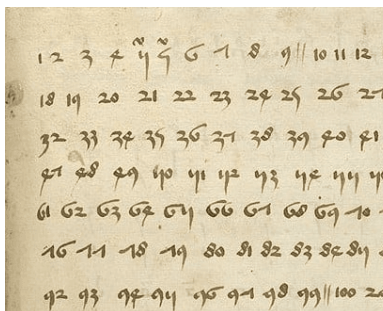 1 2 3 4 5 5 6 7 8 9 // 10 11 12
18 19 20 21 22 23 24 25 26 27
32 33 34 35 36 37 38 39 40 41
47 48 49 50 51 52 53 54 55
61 62 63 64 65 66 67 68 69 70
76 77 78 79 80 81 82 83 84 85
92 93 94 95 96 97 98 99 // 100